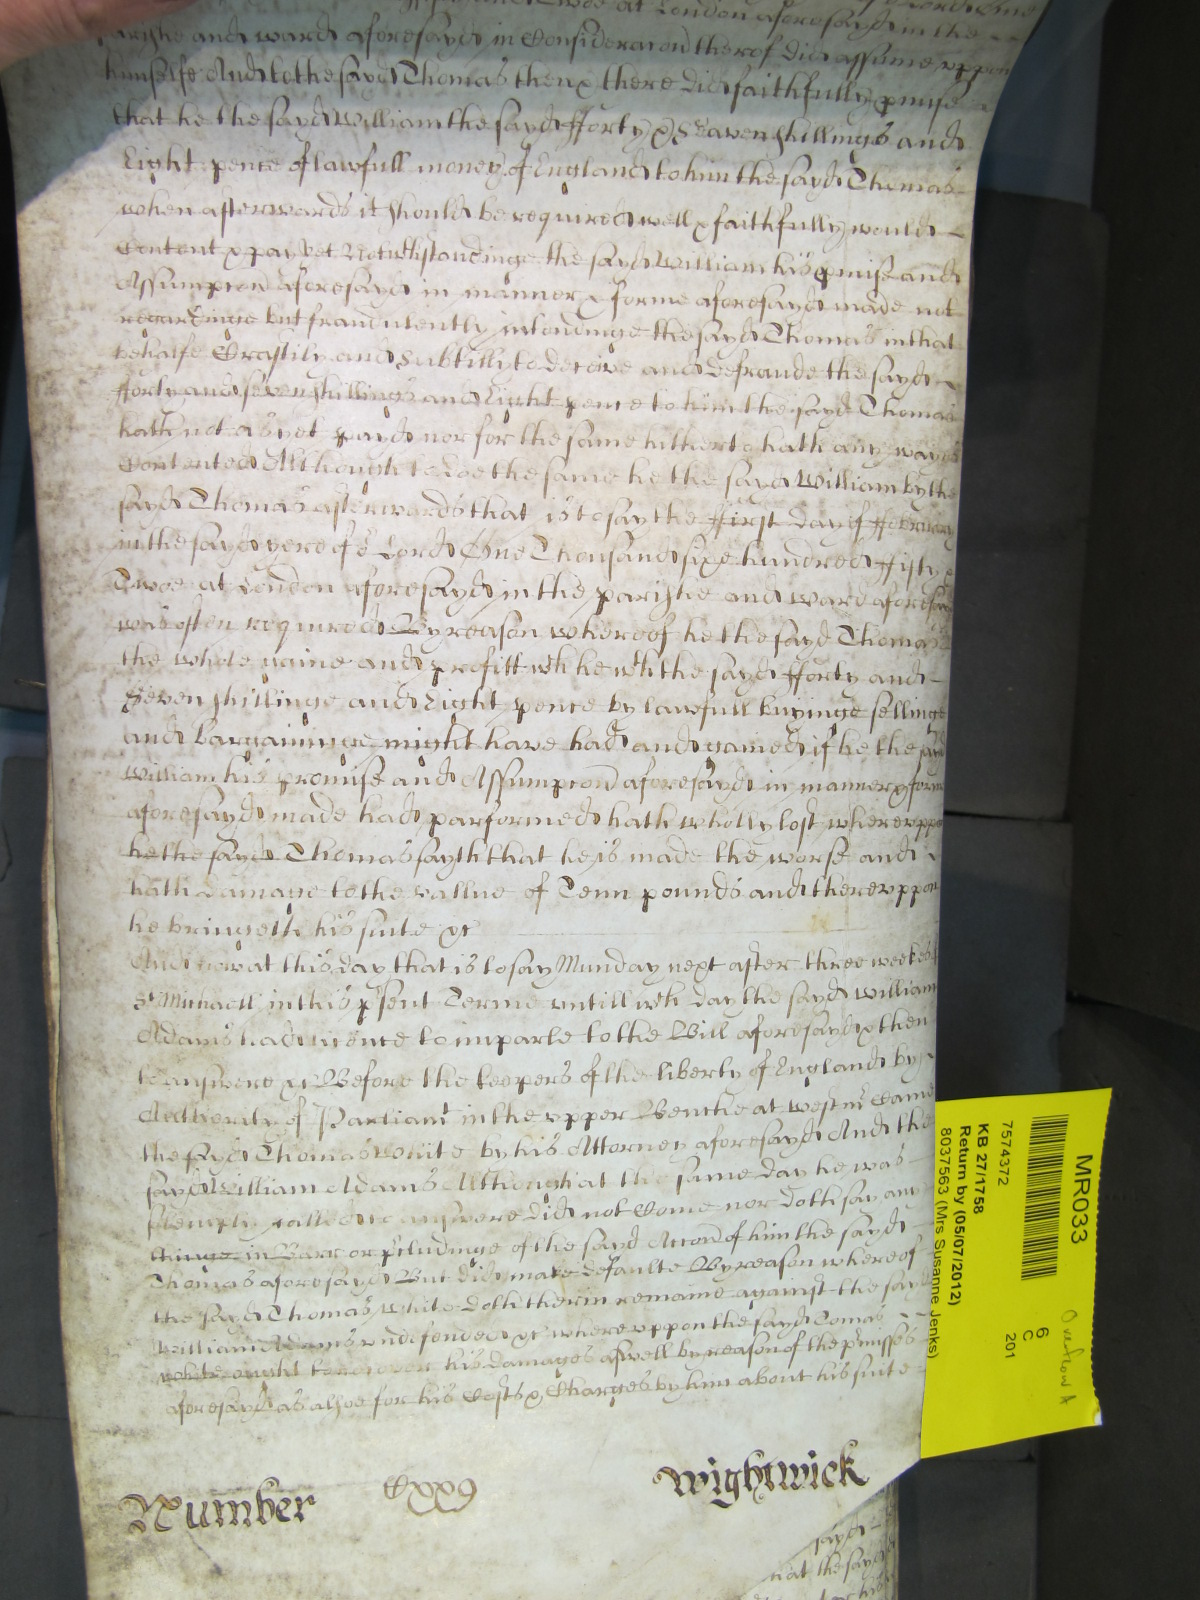 Twoe at London aforesayd in the
parishe and ward aforesayd in Consideracon therof did assume uppon
himselfe And to the sayd Thomas then & there did faithfully pmise
that he the sayd William the sayd fforty & Seaven shillings and
Eight pence of lawfull money of England to him the sayd Thomas
when afterwards it should be required well & faithfully would
Content & pay Yet Notwthstandinge the sayd William his pmise and
Assumpcon aforesayd in manner & forme aforesayd made not
regardinge but fraudulently intendinge the sayd Thomas in that
behalfe Craftily and Subtilly to deceive and defraude the sayd
fforty and seven shillings and Eight pence to him the sayd Thomas
hath not as yet payd nor for the same hitherto hath any wayes
Contented Although to doe the same he the sayd William by the
sayd Thomas afterwards that is to say the ffirst day of ffebruary
in the sayd yere of or Lord One Thousand sixe hundred ffifty
Twoe at London aforesayd in the parishe and ward aforesayd
was often required By reason whereof he the sayd Thomas
the whole gaine and profitt wch he wth the sayd fforty and
Seven shillings and Eight pence by lawfull buyinge sellinge
and bargaininge might have had and gained if he the sayd
William his promise and Assumpcon aforesayd in manner & forme
aforesayd made had parformed hath wholly lost whereuppon
he the sayd Thomas sayth that he is made the worse and
hath damage to the vallue of Tenn pounds and thereuppon
he bringeth his suite &c
And now at this day that is to say Munday next after three weekes
St Michaell in this psent Terme untill wch day the sayd William
Adams had licence to imparle to the Bill aforesayd & then
to answere &c Before the keepers of the liberty of England by
Authority of Parliamt in the upper Benche at Westmr Came
the sayd Thomas White by his Attorney aforesayd And the
sayd William Adams Although at the same day he was
solemply called to answere did not Come nor doth say any
thinge in Barr or pcludinge of the sayd Accon of him the sayd
Thomas aforesayd But did make defaulte By reason whereof
the sayd Thomas White doth therin remaine against the sayd
William Adams undefended &c whereuppon the sayd Tomas
White ought to recover his damages aswell by reason of the pmisses
aforesayd as alsoe for his Costs & Charges by him about his suite
Number Cxxx9 Wightwick
sayd
that the sayd
MR033
7574372
KB 27/1758
Return by (05/07/2012)
8037563 (Mrs Susanne Jenks)
6
C
201